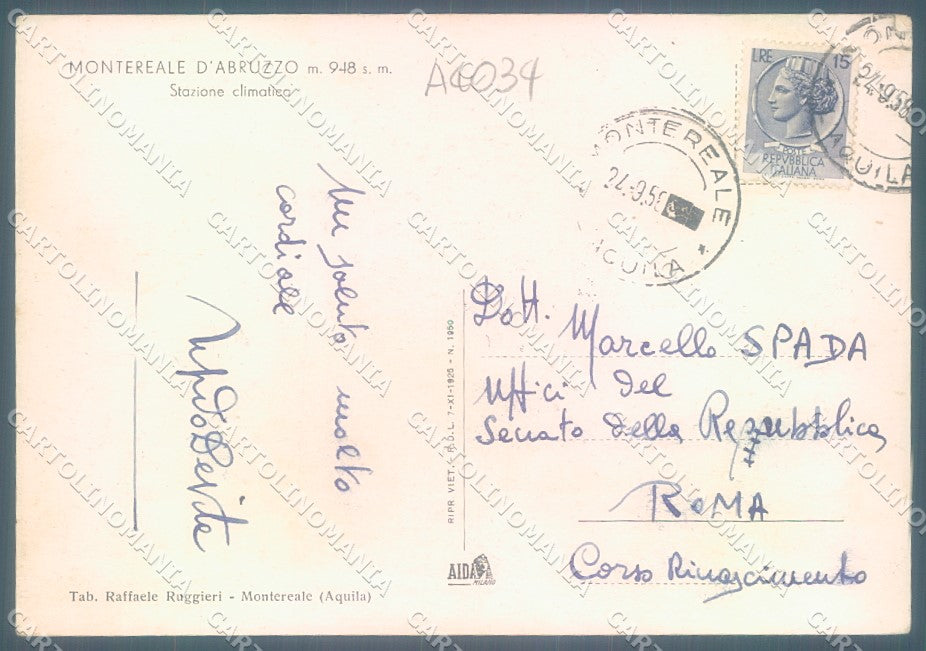 MONTEREALE D'ABRUZZO m. 948 s. m.
Stazione climatica
A4034
LRE 15
POSTE
REPVBBLICA
ITALIANA
MONTEREALE
24.9.58
AQUILA
24.9.58
AQUILA
Un saluto molto
cordiale
Dott. Marcello SPADA
Uffici del
Senato della Repubblica
ROMA
Corso Rinascimento
RIPR. VIET. - R.D.L. 7-XI-1925 - N. 1950
AIDA
MILANO
Tab. Raffaele Ruggieri - Montereale (Aquila)
CARTOLINOMANIA